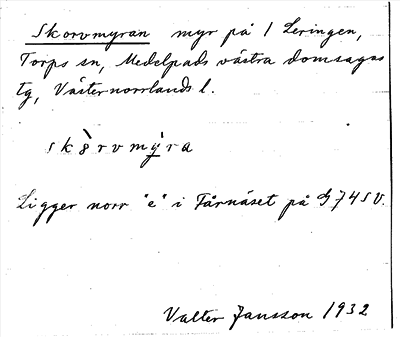 Skorvmyran myr på 1 Leringen,
Torps sn, Medelpads västra domsagas
tg, Västernorrlands l.
skòrvmỳra
Ligger norr "e" i Fårnäset på G74SV.
Valter Jansson 1932